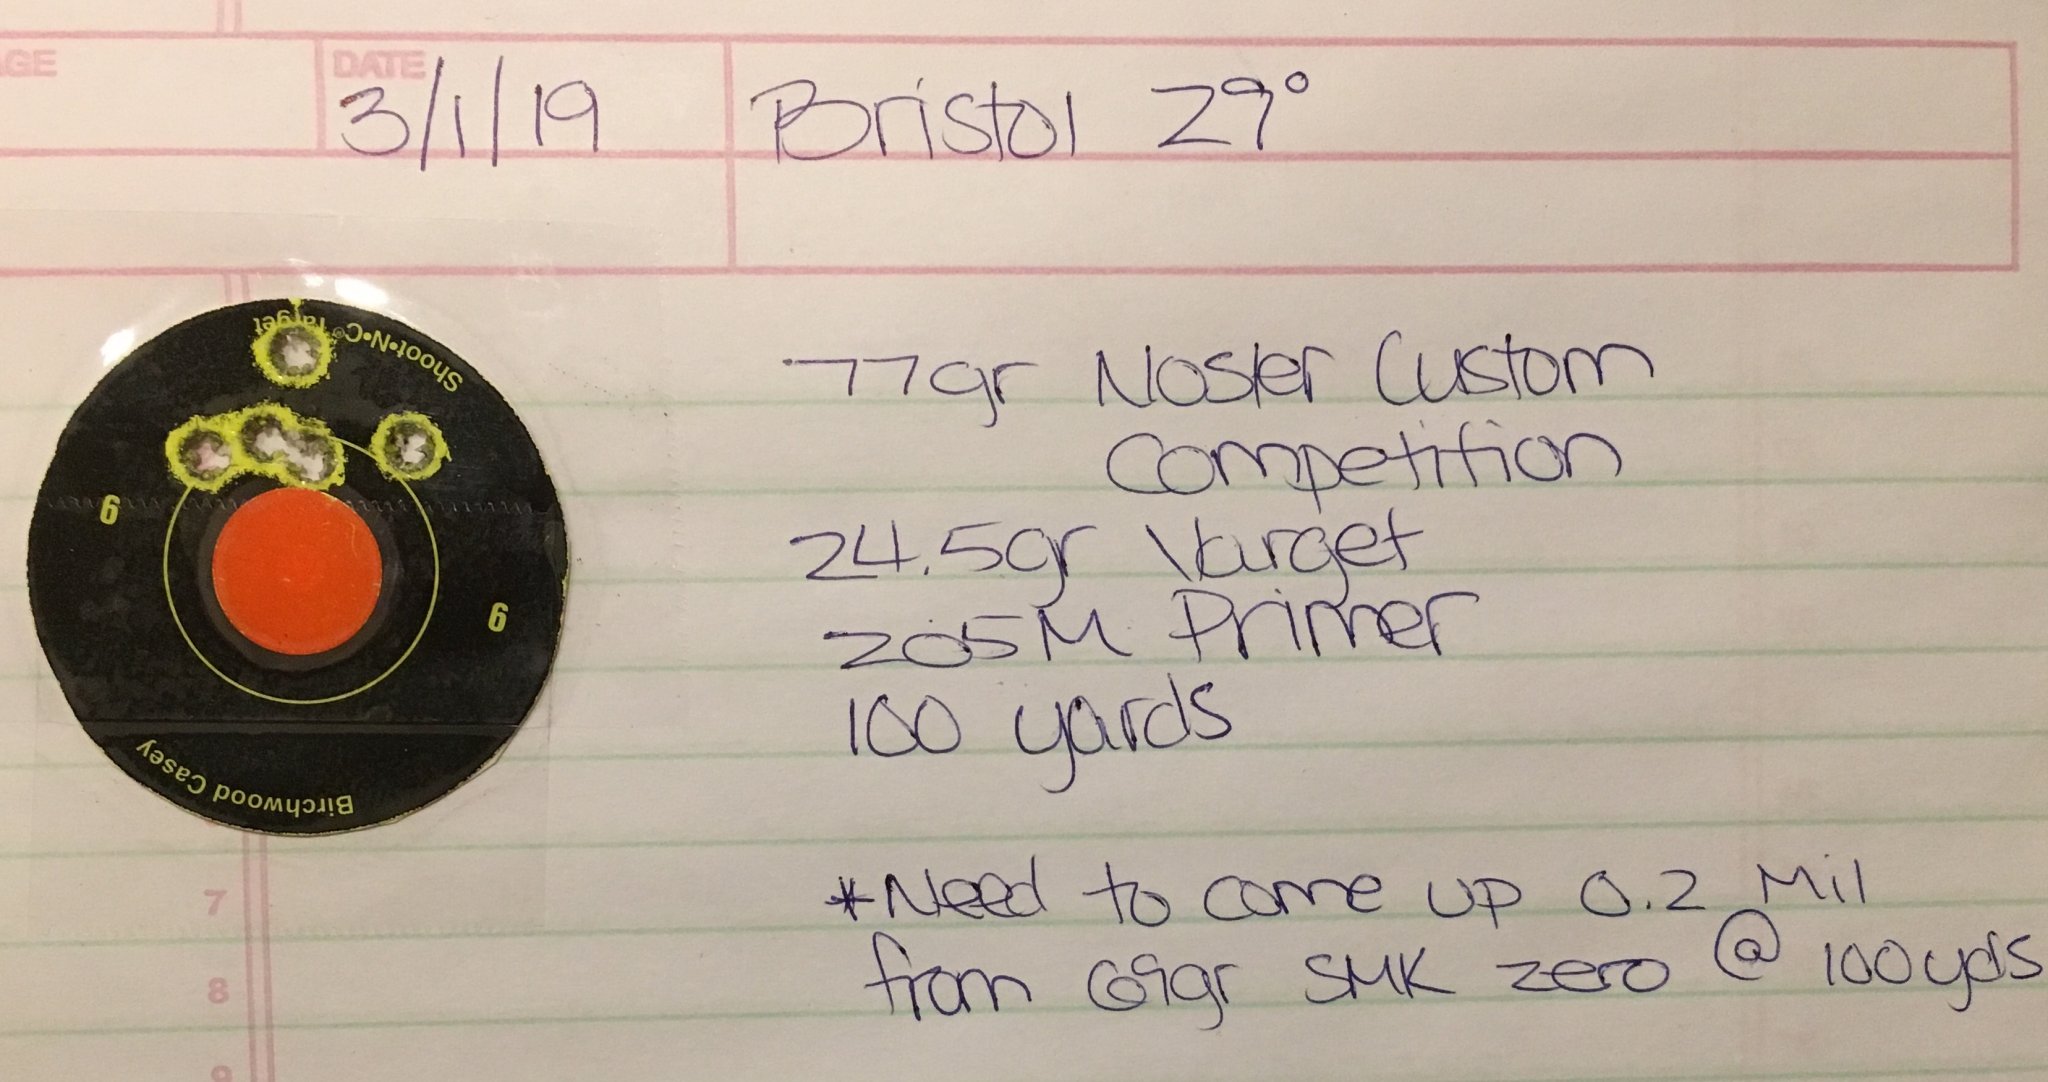 AGE
DATE
3/1/19
Bristol 29°
Shoot•N•C® Target
6
6
Birchwood Casey
77gr Nosler Custom
Competition
24.5gr Varget
205M Primer
100 yards
*Need to come up 0.2 Mil
from 69gr SMK zero @ 100yds
7
8
9